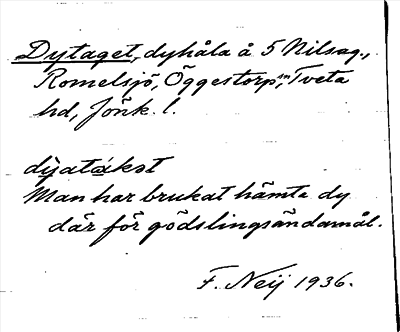 Dytaget, dyhåla å 5 Nilsag.,
Romelsjö, Öggestorp sn, Tveta
hd, Jönk. l.
Man har brukat hämta dy
där för gödslingsändamål.
F. Neij 1936.